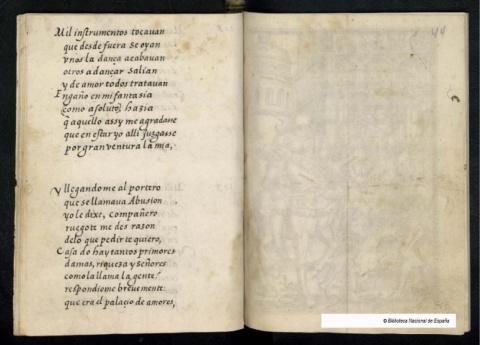 Mil instrumentos tocauan
que desde fuera se oyan
vnos la dança acabauan
otros a dançar salian
y de amor todos tratauan
Engaño en mi fantasia
como asoluto, hazia
q̃ aquello assy me agradasse
que en estar yo alli juzgasse
por gran ventura la mia,
Y llegando me al portero
que se llamaua Abusion
yo le dixe, compañero
ruego te me des razon
de lo que pedir te quiero,
Casa do hay tantos primores
damas, riqueza y señores
como la llama la gente?
respondiome breuemente:
que era el palacio de amores,
44
© Biblioteca Nacional de España